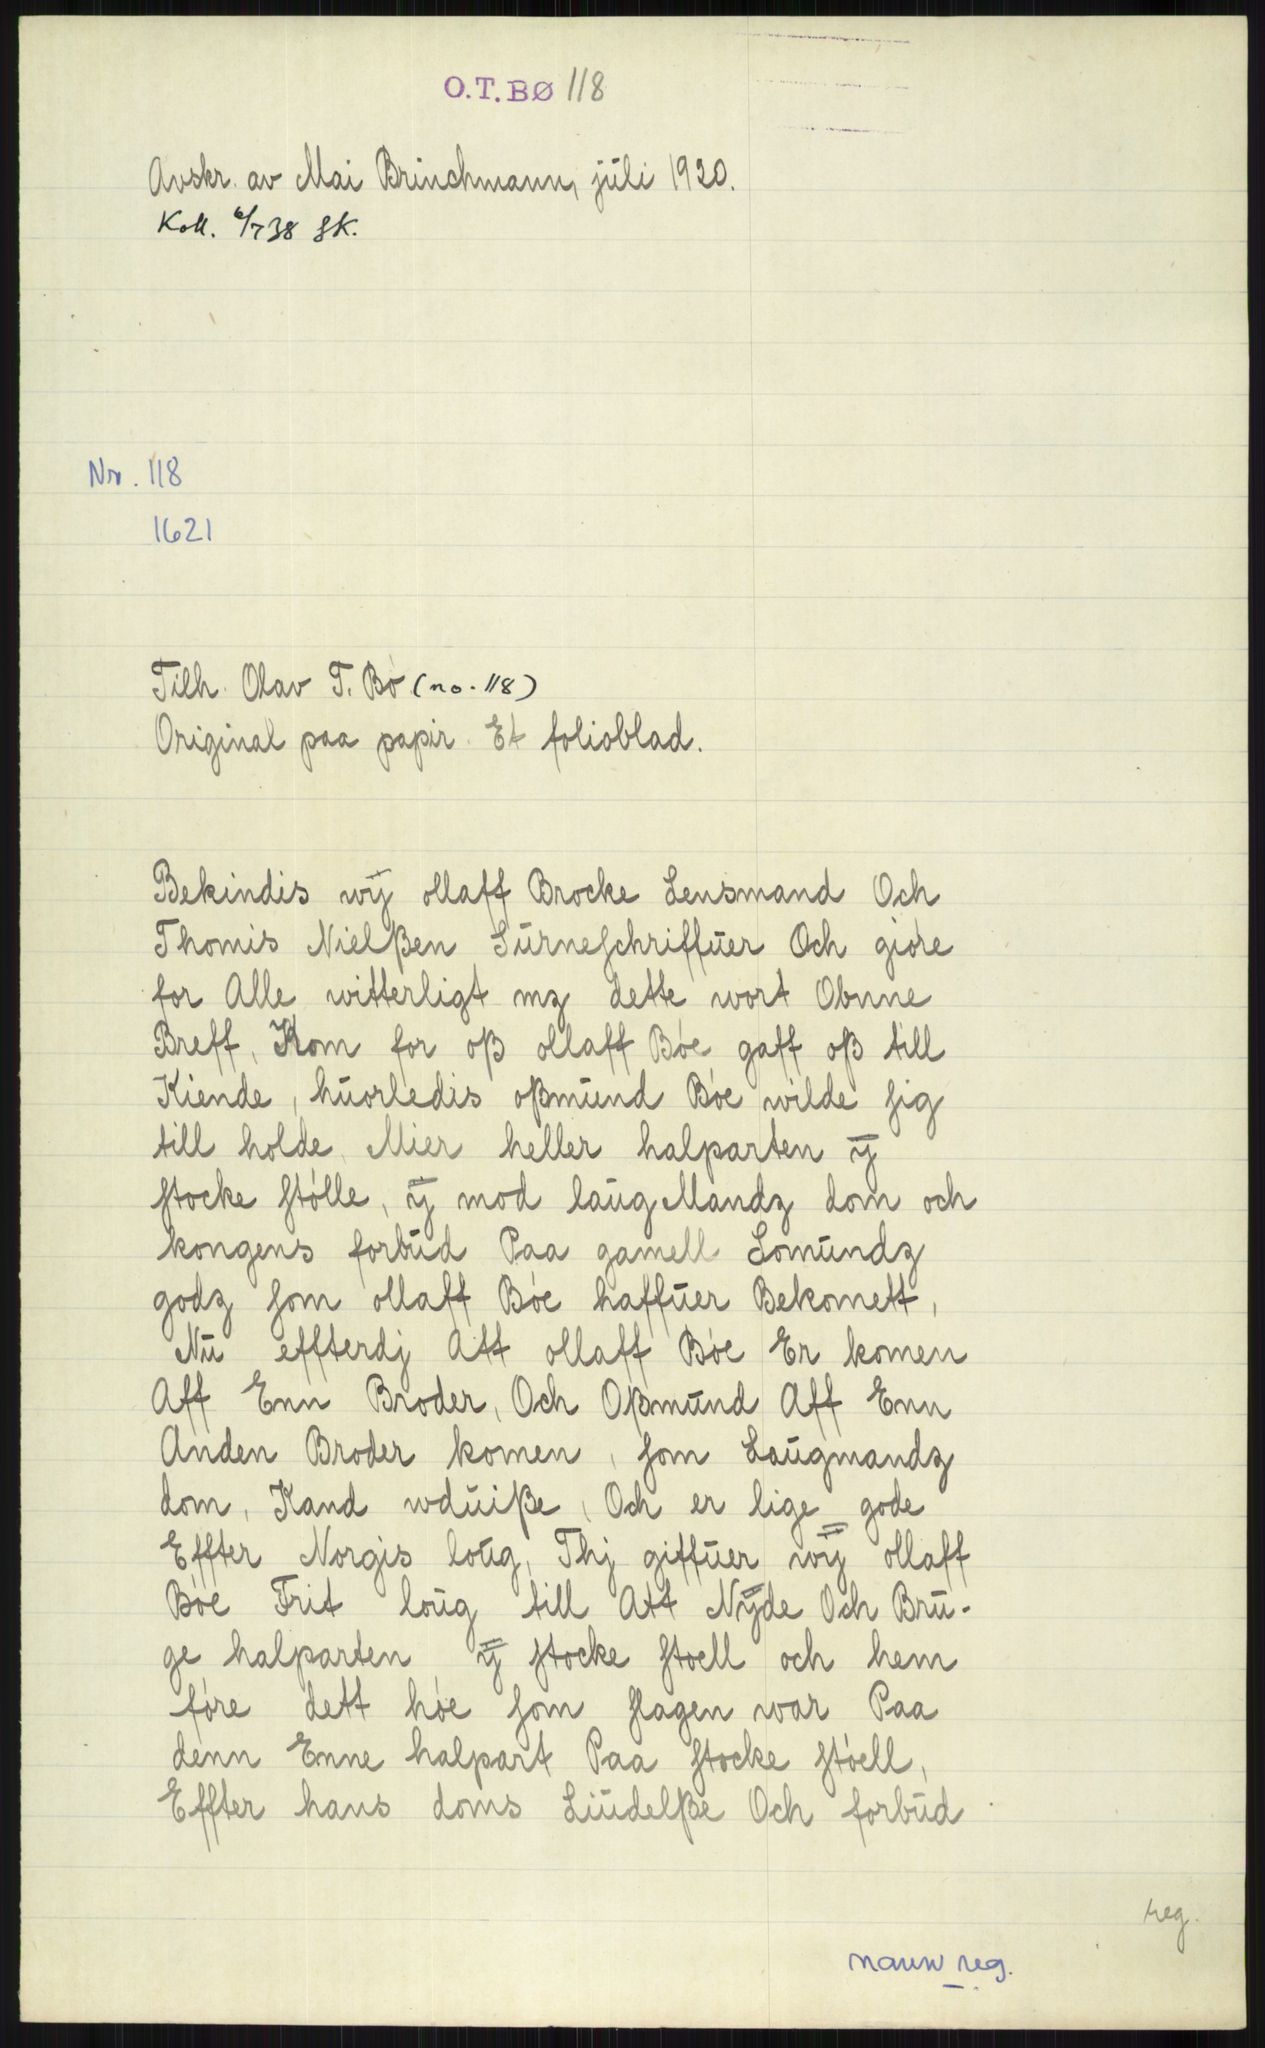 O.T.BØ 118
Avskr. av Mai Brinchmann, juli 1920.
Koll. 6/7 38 SK.
Nr. 118
1621
Tilh. Olav T. Bø (no. 118)
Original paa papir. Et folioblad.
Bekindis wÿ ollaff Brocke Lensmand Och
Thomis Nielßen Surneschriffuer Och giøre
for Alle witterligt mz dette wort Obnne
Breff, Kom for oß ollaff Bøe gaff oß till
Kiende, huorledis oßmund Bøe wilde sig
till holde Mier heller halparten ÿ
stocke stølle, ÿ mod laugMandz dom och
kongens forbud Paa gamell Lomundz
godz som ollaff Bøe haffuer Bekomett,
Nu effterdj Att ollaff Bøe Er komen
Aff Enn Broder, Och Oßmund Aff Enn
Anden Broder komen, som Laugmandz
dom, Kand wduiße, Och er lige gode
Effter Norgis loug, Thj giffuer wÿ ollaff
Bøe Frit loug till Att Nÿde Och Bru-
ge halparten ÿ stocke stoell och hem
føre dett høe som slagen war Paa
denn Enne halpart Paa stocke støell,
Effter hans doms Liudelße Och forbud
reg.
navnereg.